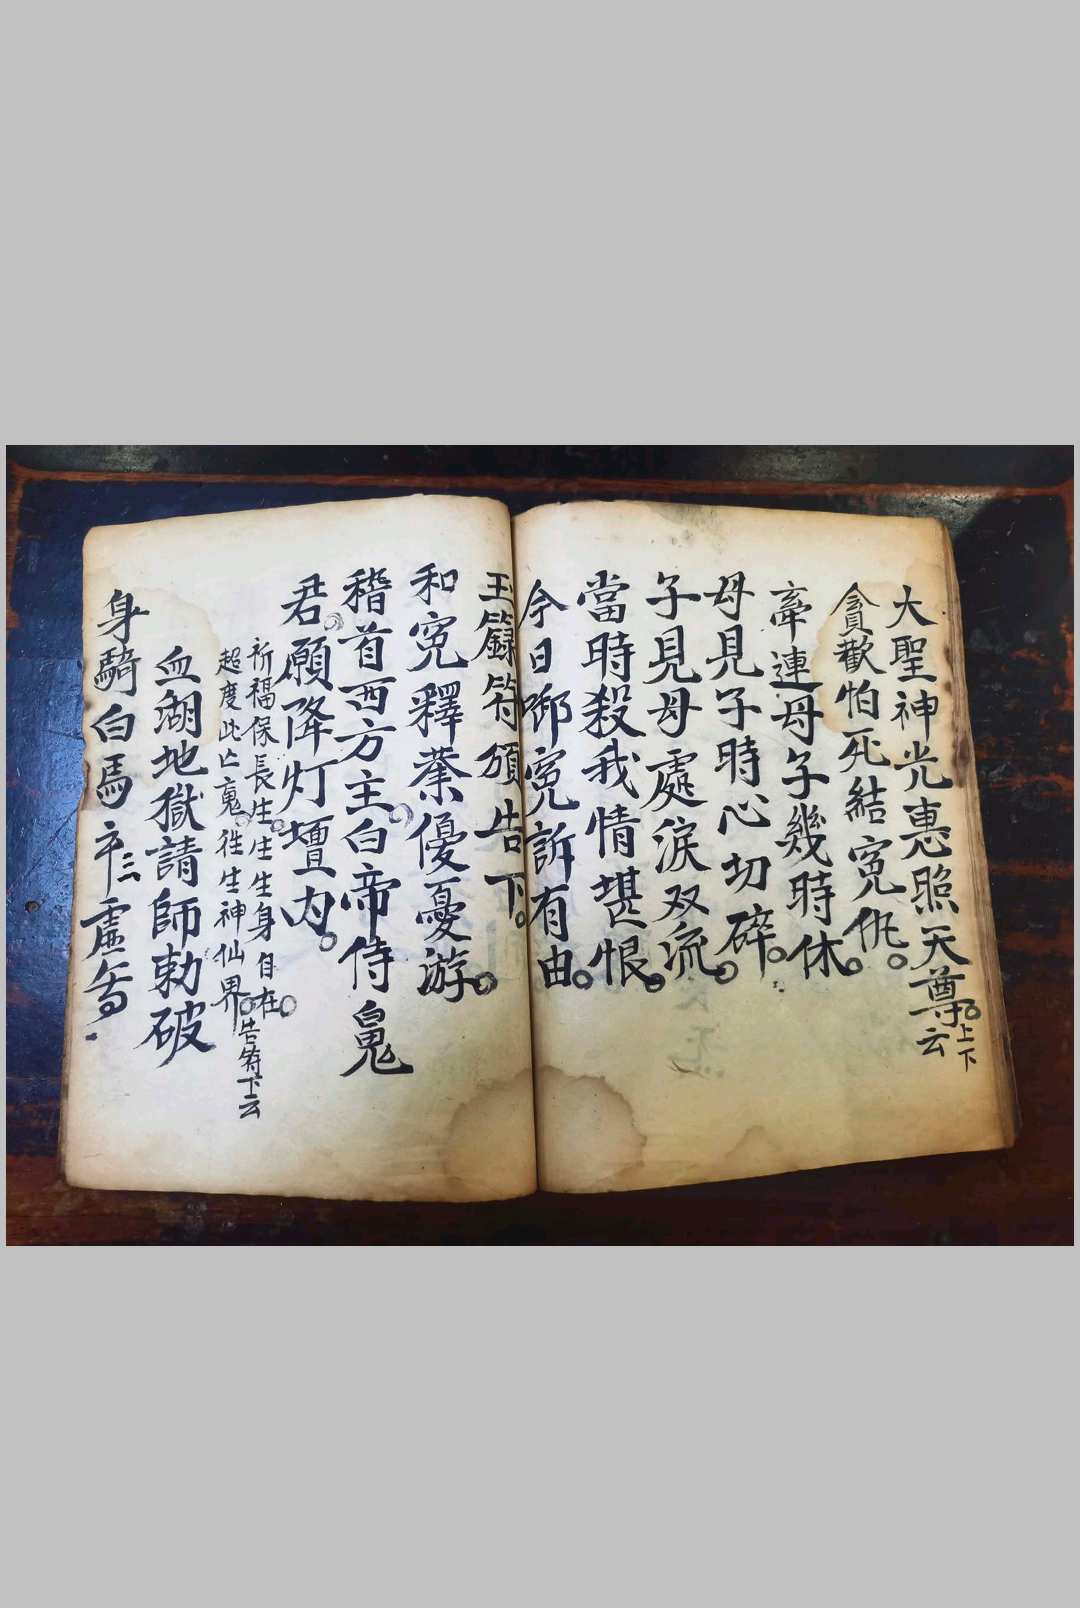 大聖神光惠照天尊 上下云
貪歡怕死結寃仇。
牽連母子幾時休。
母見子時心切碎。
子見母處淚双流。
當時殺我情堪恨。
今日啣寃訴有由。
玉籙符頒告下。
和寃釋業優憂游。
稽首西方主。白帝侍鬼
君。願降灯壇内。
祈福保長生。生生身自在。
超度此亡䰟。徃生神仙界。告符下云
血湖地獄請師勅破
身騎白馬卒三虚